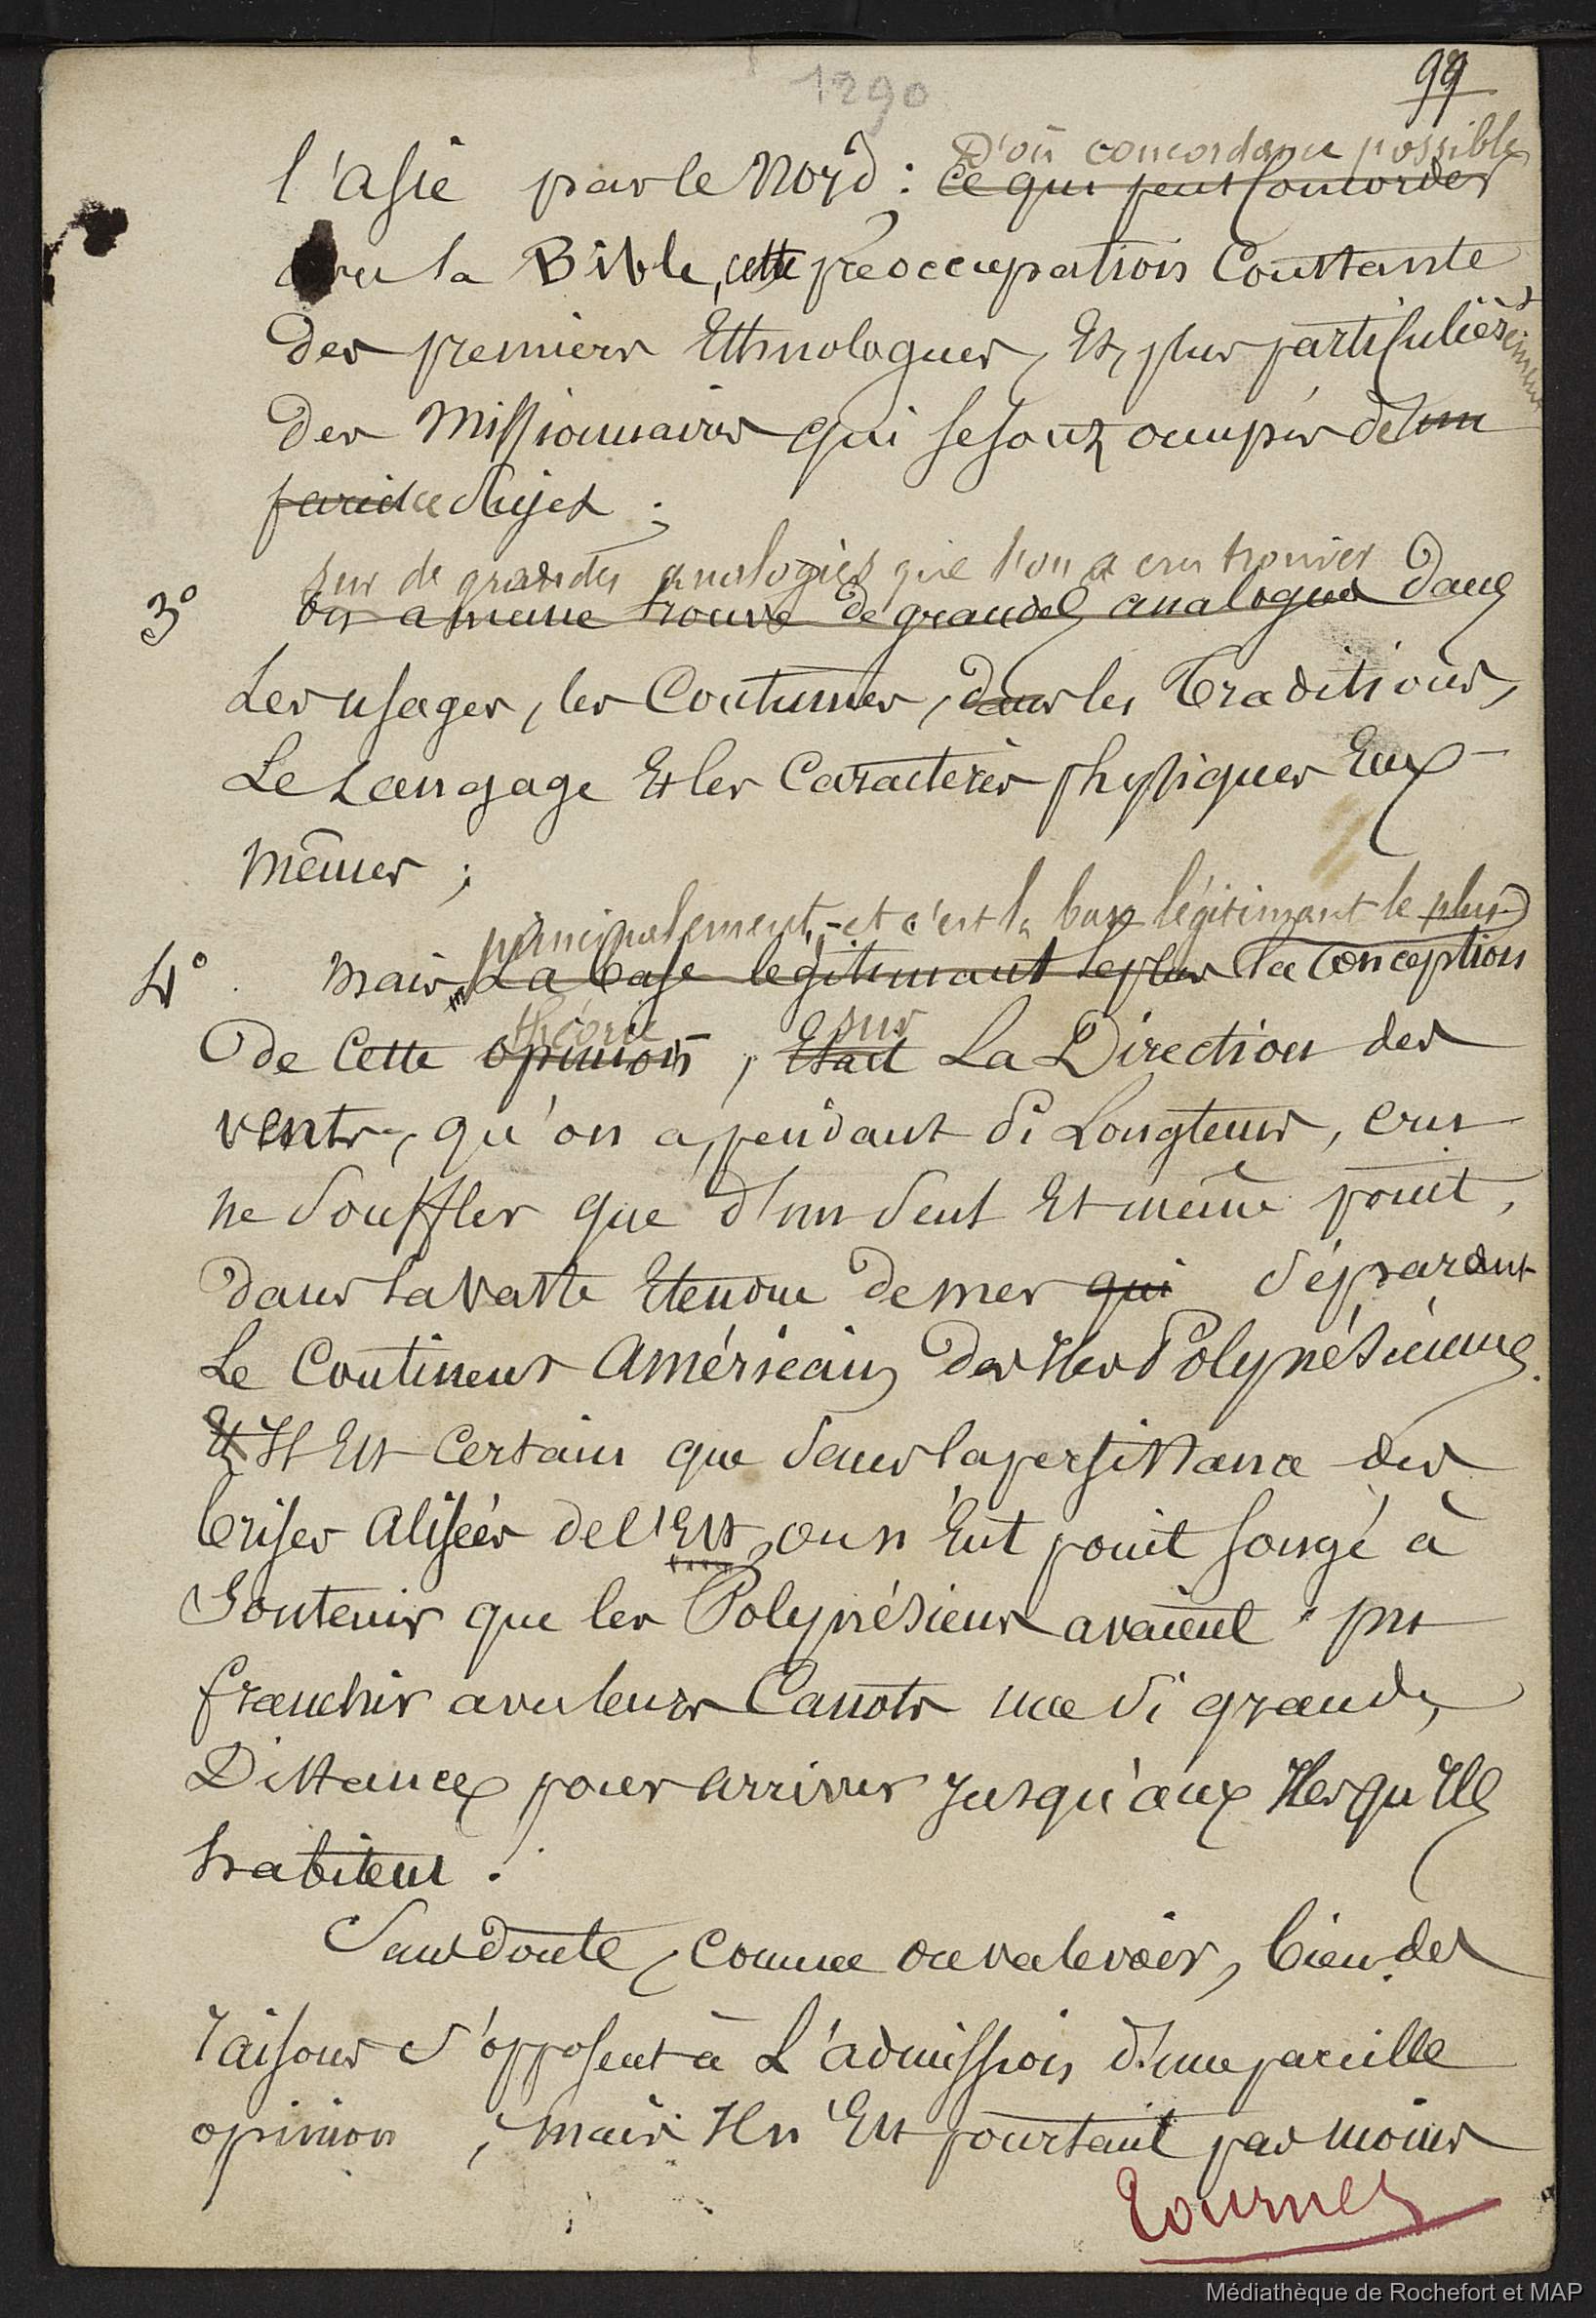 1290
99
D'où concordance possible
l'asie par le Nord : ce qui peut concorder
avec la Bible, cette préoccupation constante
des premiers Ethnologues, Et, plus particulièrement
des Missionnaires qui se sont occupés de un
pareil ce sujet ;
sur de grandes analogies que l'on a cru trouver
3° on a même trouvé de grandes analogies dans
Les usages, les Coutumes, dans les Traditions,
Le Langage Et les Caractères physiques Eux-
mêmes ;
principalement, - et c'est la base légitimant le plus
4° mais La base légitimant le plus la conception
théorie sur
de cette opinion, Etait La Direction des
vents, qu'on a, pendant si Longtems, cru
ne souffler que d'un seul Et même point,
dans la vaste Etendue de mer qui séparant
Le Continent Américain des Iles Polynésiennes.
Et Il Est certain que sans la persistance des
brises alisées de l'Est, on n'Eut point songé à
Soutenir que les Polynésiens avaient pu
franchir avec leurs Canots une si grande
Distance pour arriver jusqu'aux Iles qu'Ils
habitent.
Sans doute, comme on va le voir, bien des
raisons s'opposent à L'admission d'une pareille
opinion, mais Il n'Est pourtant pas moins
Tournez
Médiathèque de Rochefort et MAP